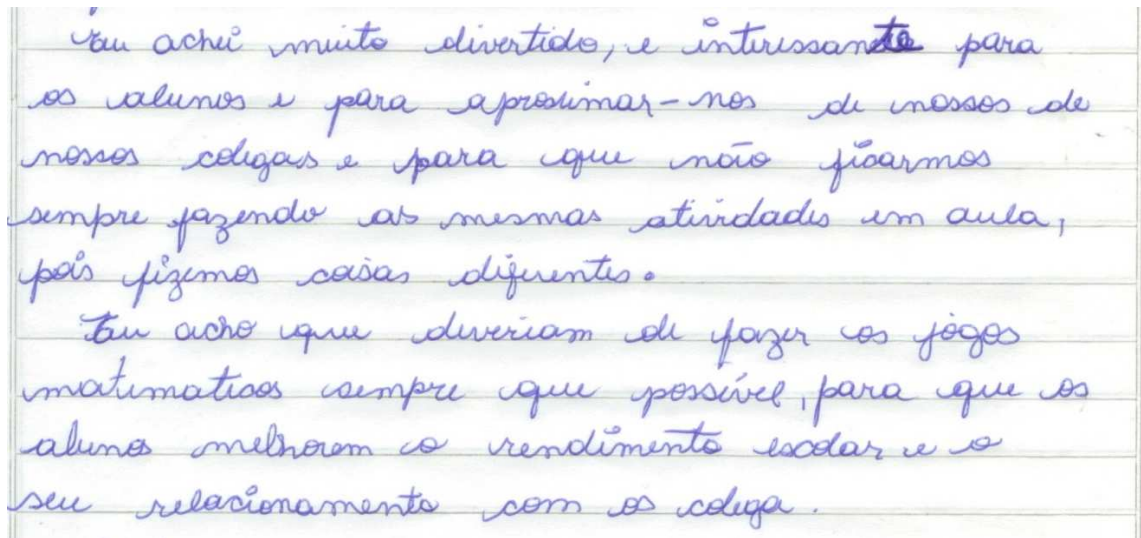 Eu achei muito divertido, e interessante para
os alunos e para aproximar-nos de nossos de
nossos colegas e para que não ficarmos
sempre fazendo as mesmas atividades em aula,
pois fizemos coisas diferentes.
Eu acho que deveriam de fazer os jogos
matematicos sempre que possível, para que os
alunos melhorem o rendimento escolar e o
seu relacionamento com os colega.